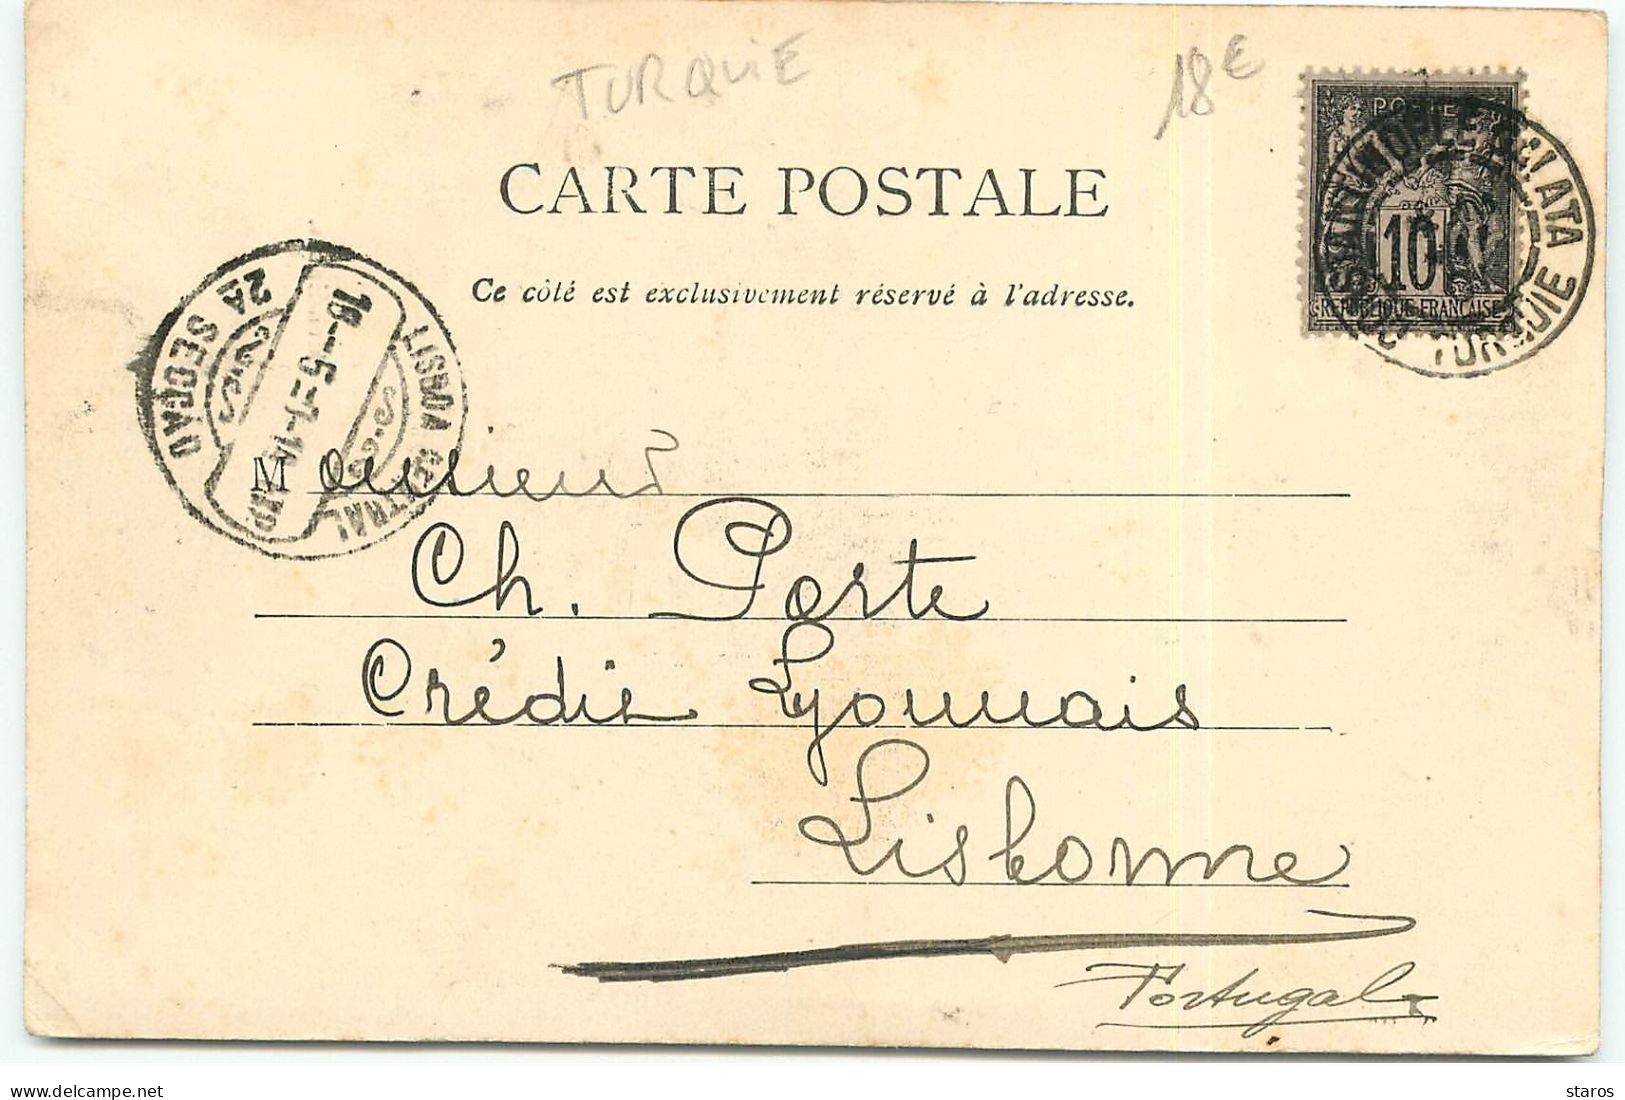 TURQUIE
18€
POSTE
10
REPUBLIQUE FRANÇAISE
GALATA
TURQUIE
CARTE POSTALE
Ce côté est exclusivement réservé à l'adresse.
LISBOA CENTRAL
2A SECCÃO
Monsieur
Ch. Porte
Crédit Lyonnais
Lisbonne
Portugal
staros